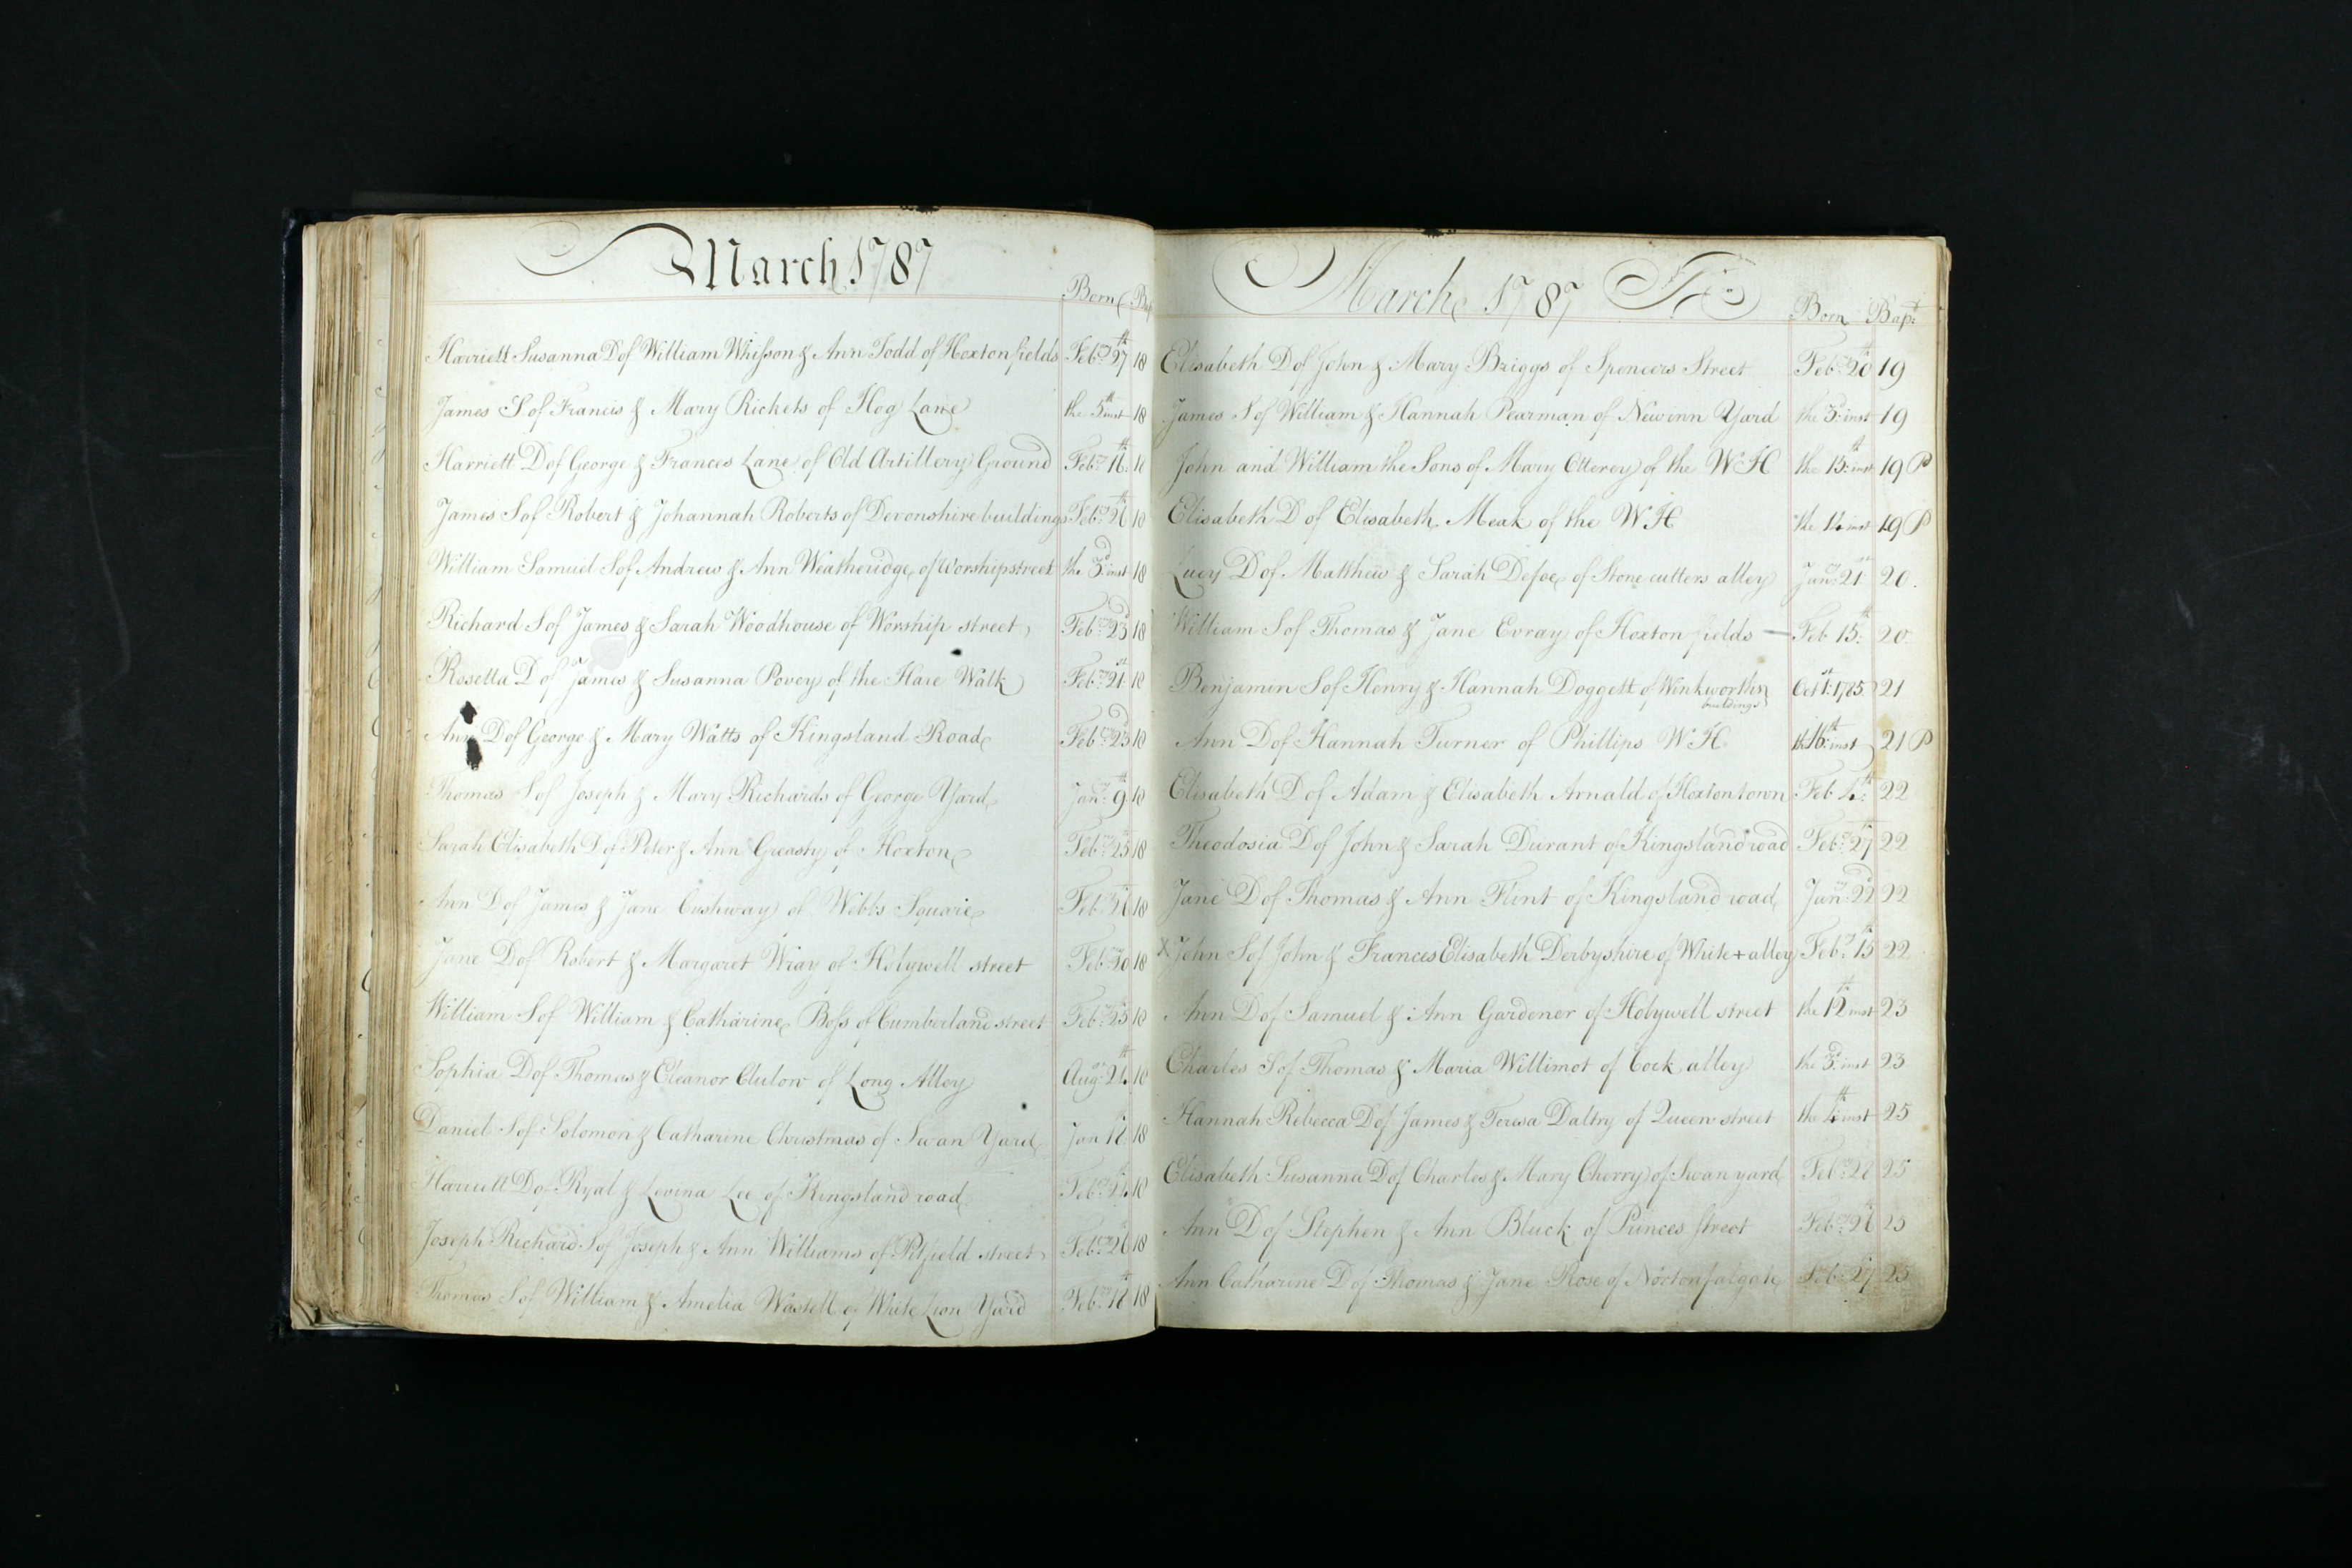 March 1787
Born Bap
Harriett Susanna D of William Whisson & Ann Todd of Hoxton fields Feb.ry 27th 18
James S of Francis & Mary Rickets of Hog Lane the 5th inst 18
Harriett D of George & Frances Lane of Old Artillery Ground Feb.ry 16th 18
James S of Robert & Johannah Roberts of Devonshire buildings Feb.ry 26th 18
William Samuel S of Andrew & Ann Weatheridge of Worship street the 3d inst 18
Richard S of James & Sarah Woodhouse of Worship street Feb.ry 23d 18
Rosetta D of James & Susanna Povey of the Hare Walk Feb.ry 21st 18
Ann D of George & Mary Watts of Kingsland Road Feb.ry 23d 18
Thomas S of Joseph & Mary Richards of George Yard Jan.ry 9th 18
Sarah Elisabeth D of Peter & Ann Greasty of Hoxton Feb.ry 25 18
Ann D of James & Jane Cushway of Webbs Square Feb.ry 26 18
Jane D of Robert & Margaret Wray of Holywell street Feb.ry 18
William S of William & Catharine Boss of Cumberland street Feb.ry 25 18
Sophia D of Thomas & Eleanor Clulow of Long Alley Aug.st 18
Daniel S of Solomon & Catharine Christmas of Swan Yard Jan 18
Harriett D of Ryal & Levina Lee of Kingsland road Feb.ry 18
Joseph Richard S of Joseph & Ann Williams of Pitfield street Feb.ry 26 18
Thomas S of William & Amelia Wastell of White Lion Yard Feb.ry 18
March 1787
Born Bapt
Elisabeth D of John & Mary Briggs of Spencers Street Feb.ry 20th 19
James S of William & Hannah Pearman of Newinn Yard the 3d inst 19
John and William the Sons of Mary Otterey of the W H the 15th inst 19 P
Elisabeth D of Elisabeth Meak of the W H the inst 19 P
Lucy D of Matthew & Sarah Defoe of Stone cutters alley Jan.ry 21st 20
William S of Thomas & Jane Evray of Hoxton fields Feb 15th 20
Benjamin S of Henry & Hannah Doggett of Winkworths buildings Oct 1st 1785 21
Ann D of Hannah Turner of Phillips W H the 16th inst 21 P
Elisabeth D of Adam & Elisabeth Arnald of Hoxton town Feb 4th 22
Theodosia D of John & Sarah Durant of Kingsland road Feb.ry 27th 22
Jane D of Thomas & Ann Flint of Kingsland road Jan.ry 22d 22
X John S of John & Frances Elisabeth Derbyshire of White + alley Feb.ry 15th 22
Ann D of Samuel & Ann Gardener of Holywell street the 12th inst 23
Charles S of Thomas & Maria Willimot of Cock alley the 3d inst 23
Hannah Rebecca D of James & Teresa Daltry of Queen street the 4th inst 25
Elisabeth Susanna D of Charles & Mary Cherry of Swan yard Feb.ry 25
Ann D of Stephen & Ann Bluck of Princes street Feb.ry 26 25
Ann Catharine D of Thomas & Jane Rose of Nortonfalgate Feb.ry 27 25